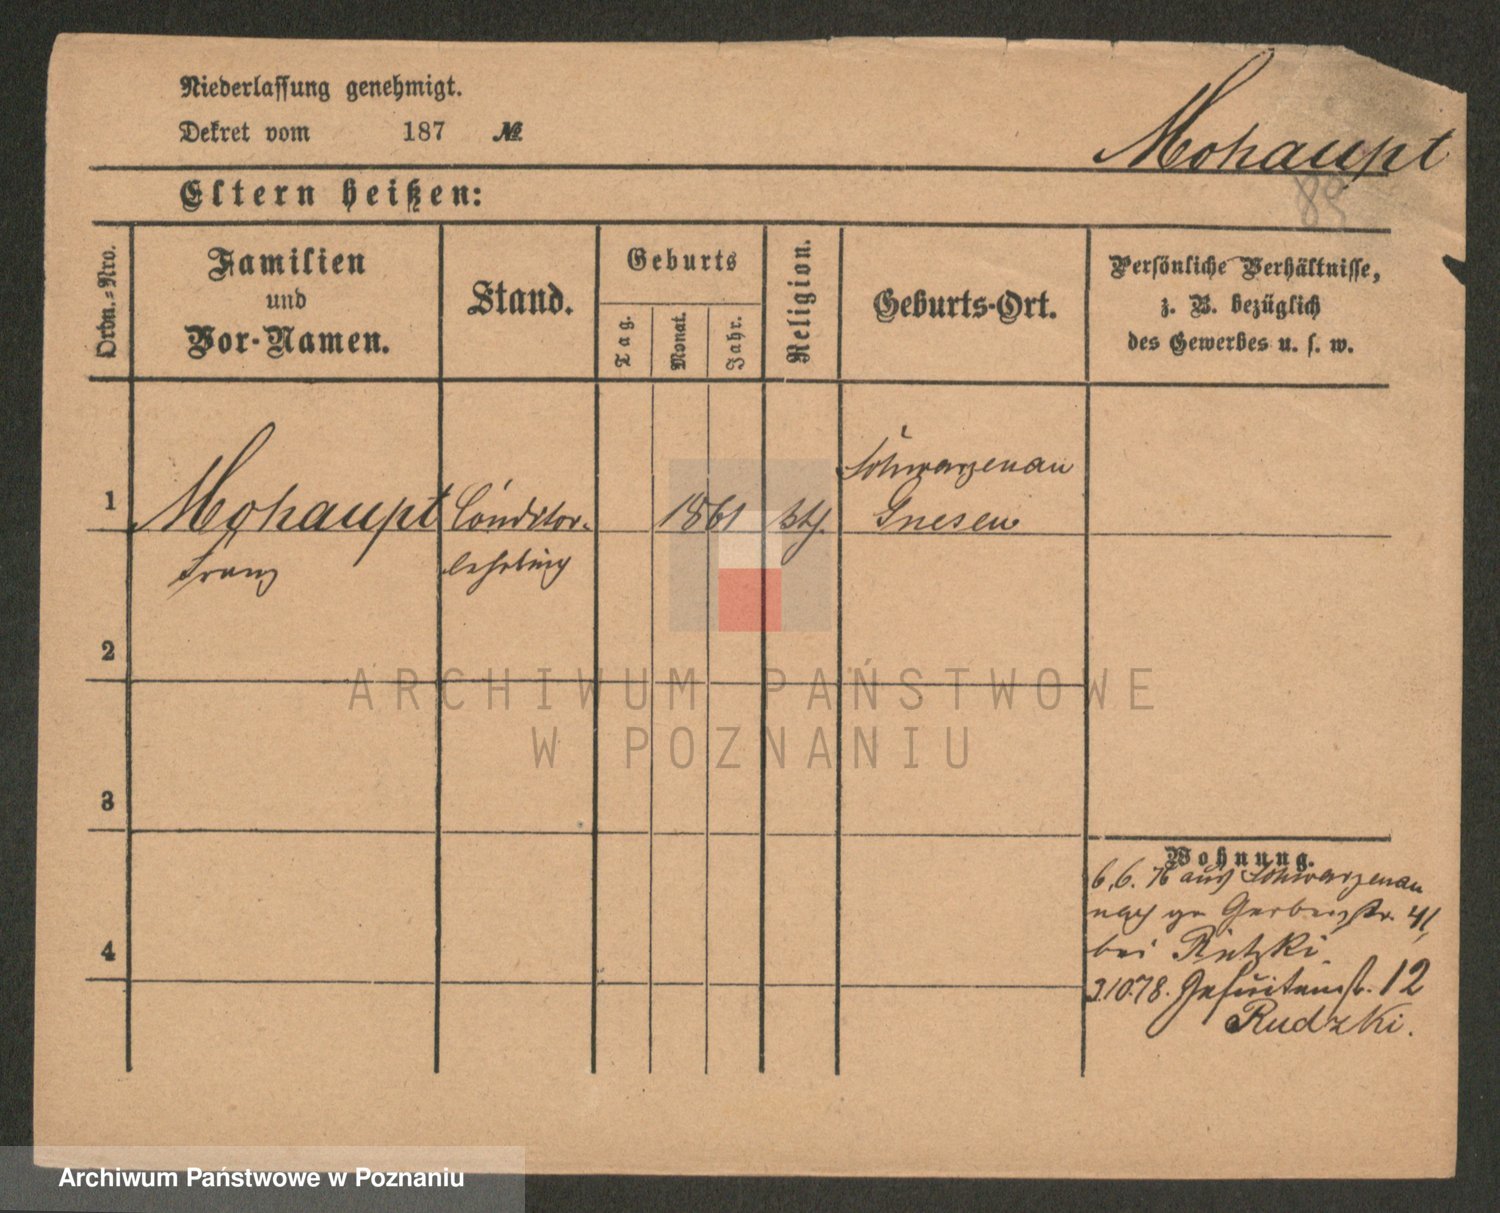 Niederlassung genehmigt.
Dekret vom 187 №
Mohaupt
89
Eltern heißen:
Ordn.=Nro.
Familien
und
Vor-Namen.
Stand.
Geburts
Tag.
Monat.
Jahr.
Religion.
Geburts-Ort.
Persönliche Verhältnisse,
z. B. bezüglich
des Gewerbes u. s. w.
1
Mohaupt
Franz
Conditor-
lehrling
1861
kth.
Schwarzenau
Gnesen
2
3
4
Wohnung.
6.6.76 aus Schwarzenau
nach gr Gerberstr. 41,
bei
3.10.78. Jesuitenstr. 12
Rudzki.
ARCHIWUM PAŃSTWOWE
W POZNANIU
Archiwum Państwowe w Poznaniu